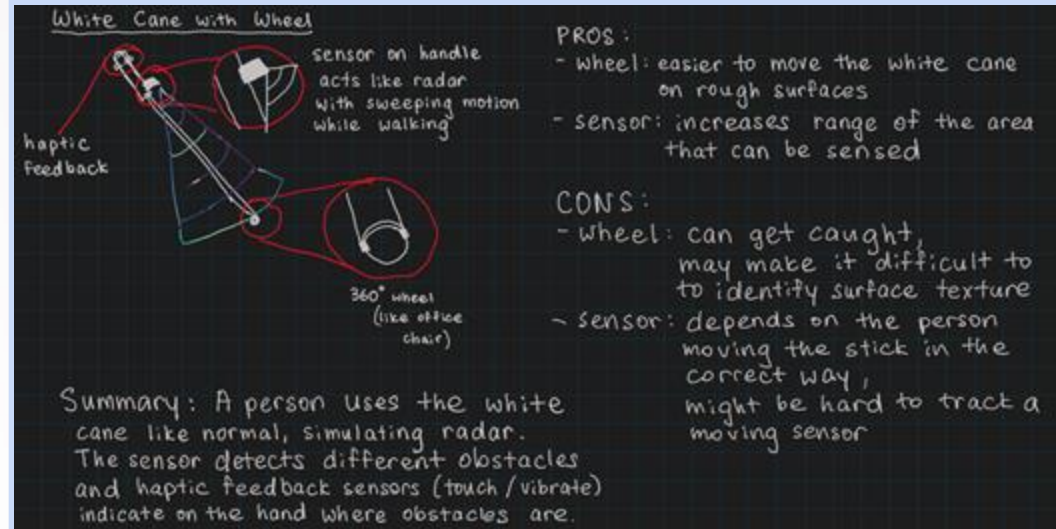 White Cane with Wheel
sensor on handle
acts like radar
with sweeping motion
while walking
haptic
feedback
360° wheel
(like office
chair)
Summary: A person uses the white
cane like normal, simulating radar.
The sensor detects different obstacles
and haptic feedback sensors (touch/vibrate)
indicate on the hand where obstacles are.
PROS:
- wheel: easier to move the white cane
on rough surfaces
- sensor: increases range of the area
that can be sensed
CONS:
- wheel: can get caught,
may make it difficult to
to identify surface texture
- sensor: depends on the person
moving the stick in the
correct way,
might be hard to track a
moving sensor